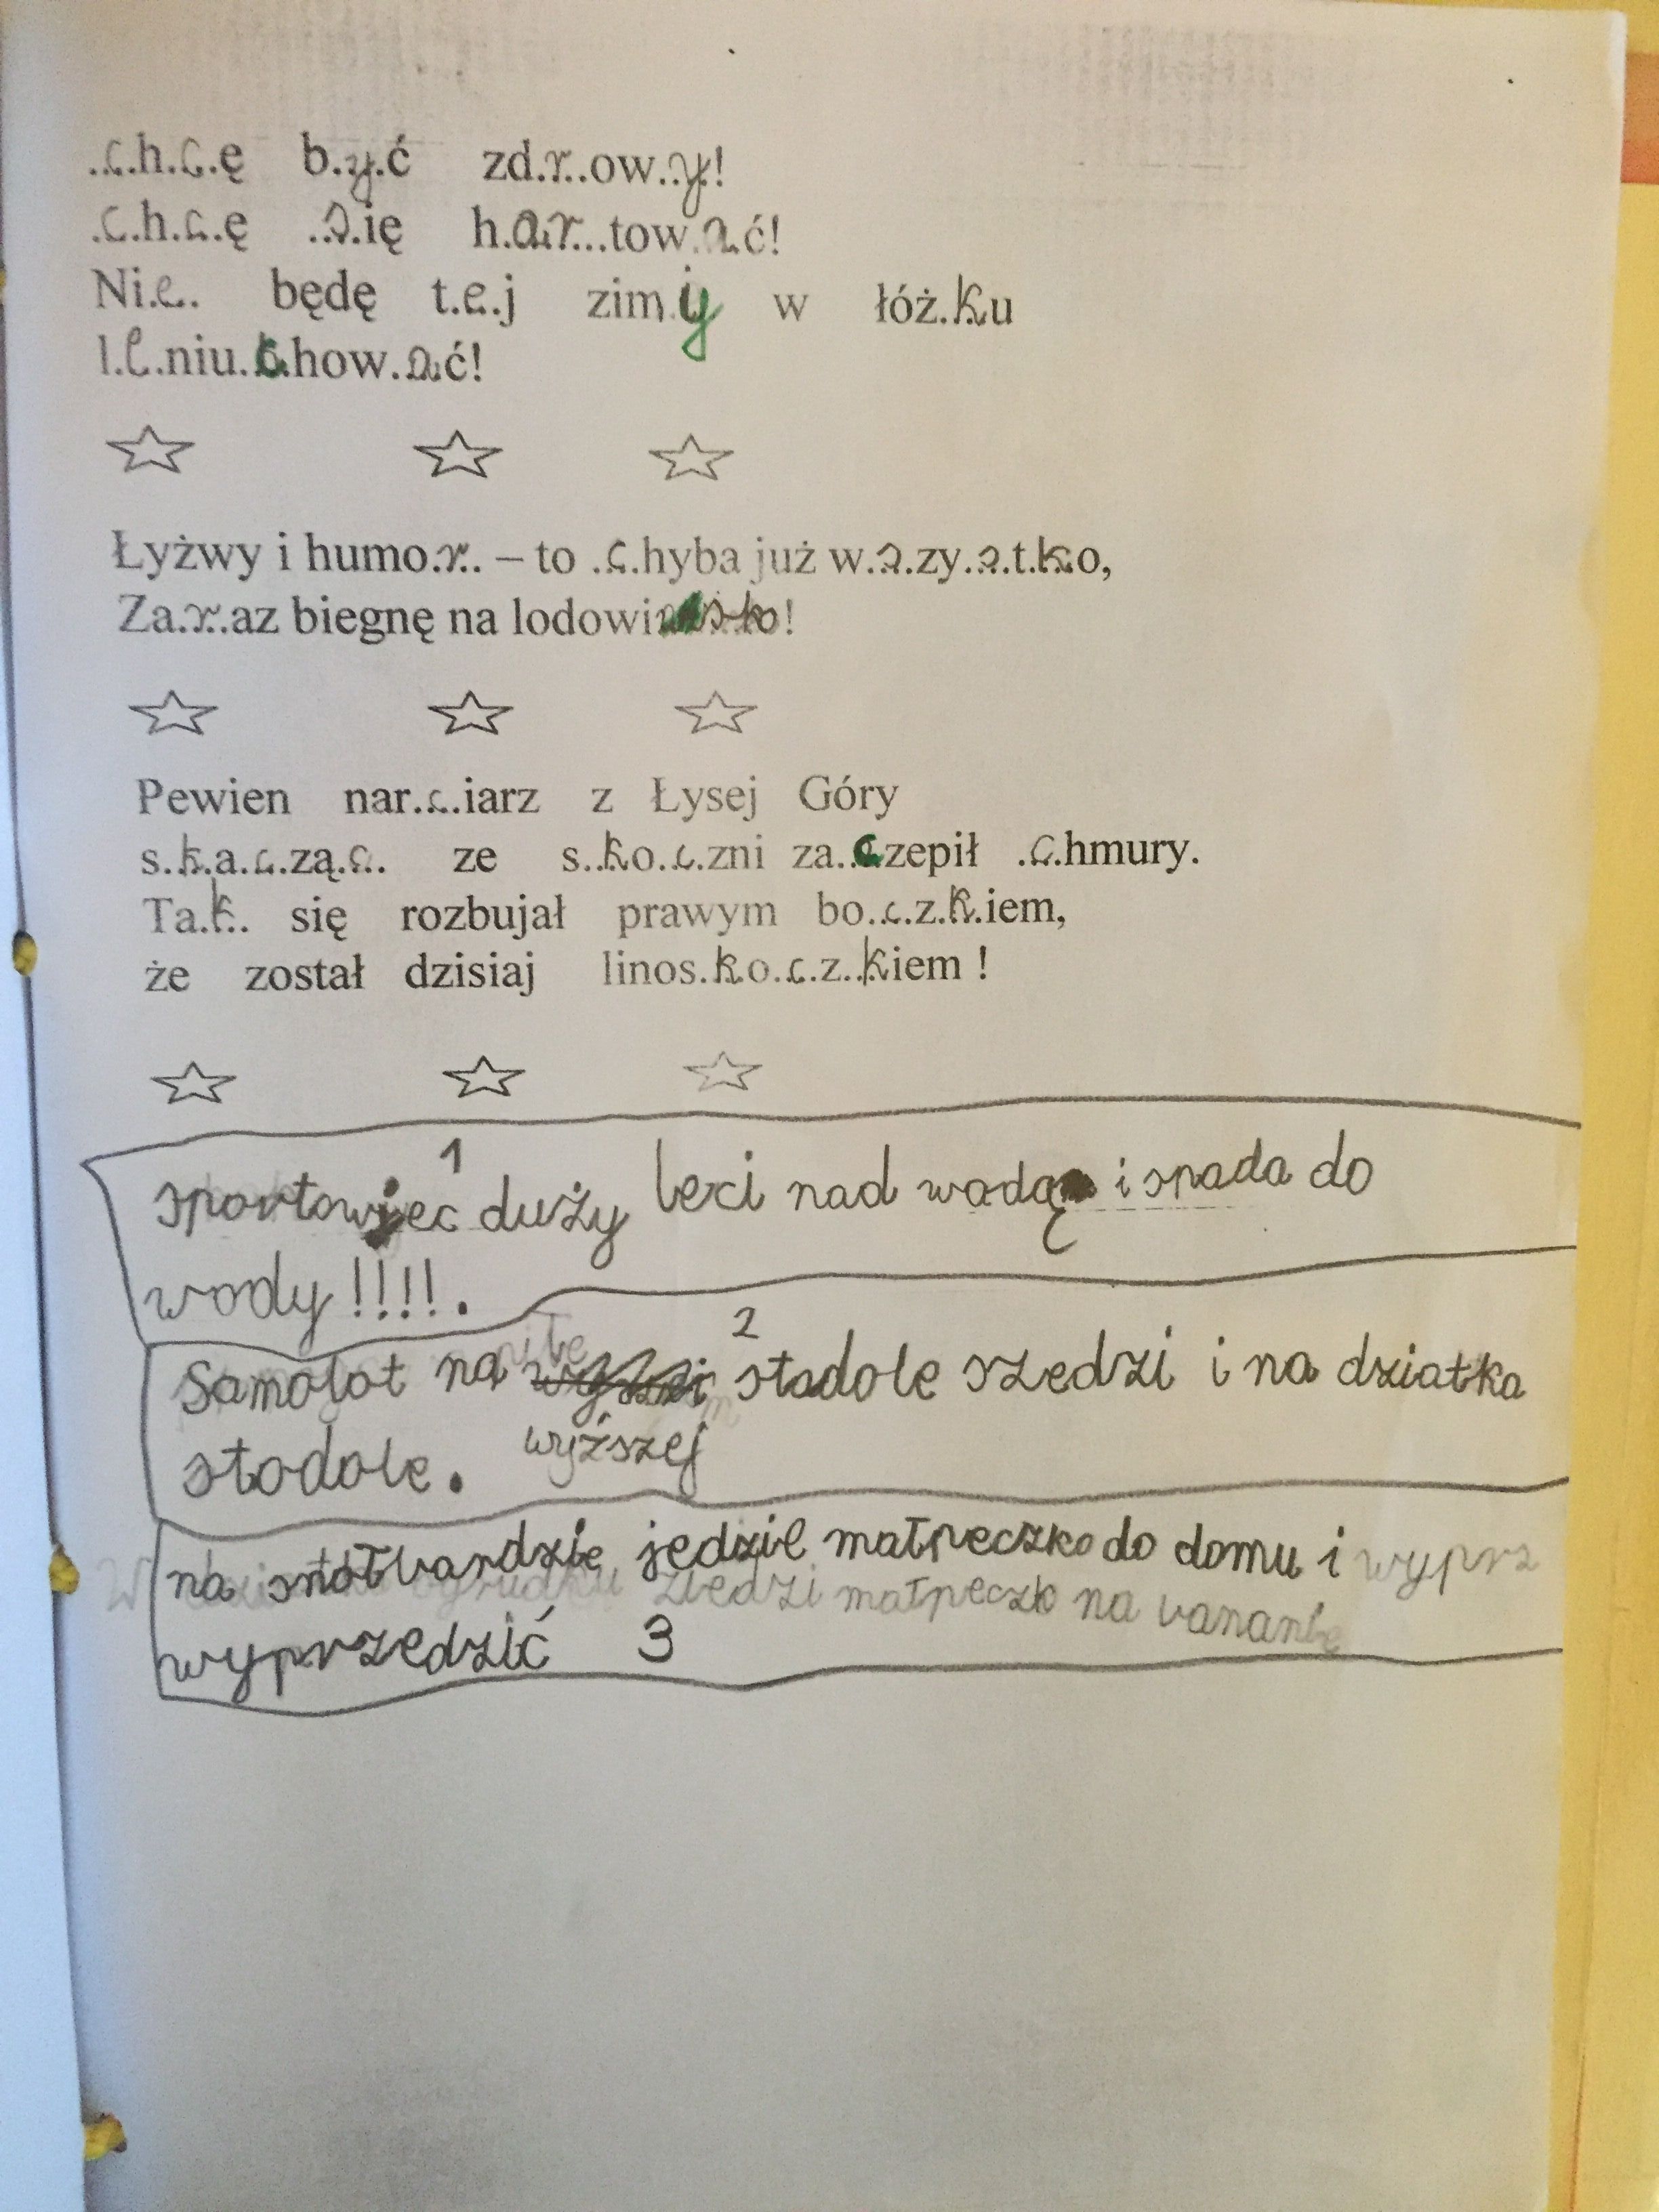 .c.h.c.ę b.y.ć zd.r..ow..y.!
.c.h.c.ę ..s.ię h.ar...tow.a.ć!
Ni.e.. będę t.e.j zim.y w łóż.k.u
l.e.niu.c.how.a.ć!
Łyżwy i humo.r.. – to .c.hyba już w.s.zy.s.t.k.o,
Za.r.az biegnę na lodowi
Pewien nar.c.iarz z Łysej Góry
s.k.a.c.zą.c. ze s..k.o.c.zni za..c.zepił .c.hmury.
Ta.k.. się rozbujał prawym bo.c.z.k.iem,
że został dzisiaj linos.k.o.c.z..kiem !
1
sportowiec duży leci nad wodą i spada do
wody !!!!.
2
Samolot na stodole szedzi i na dziatka
wyższej
stodole.
na jedzie małpeczka do domu i wyprz
zbedzi małpeczk na
wyprzedzić 3